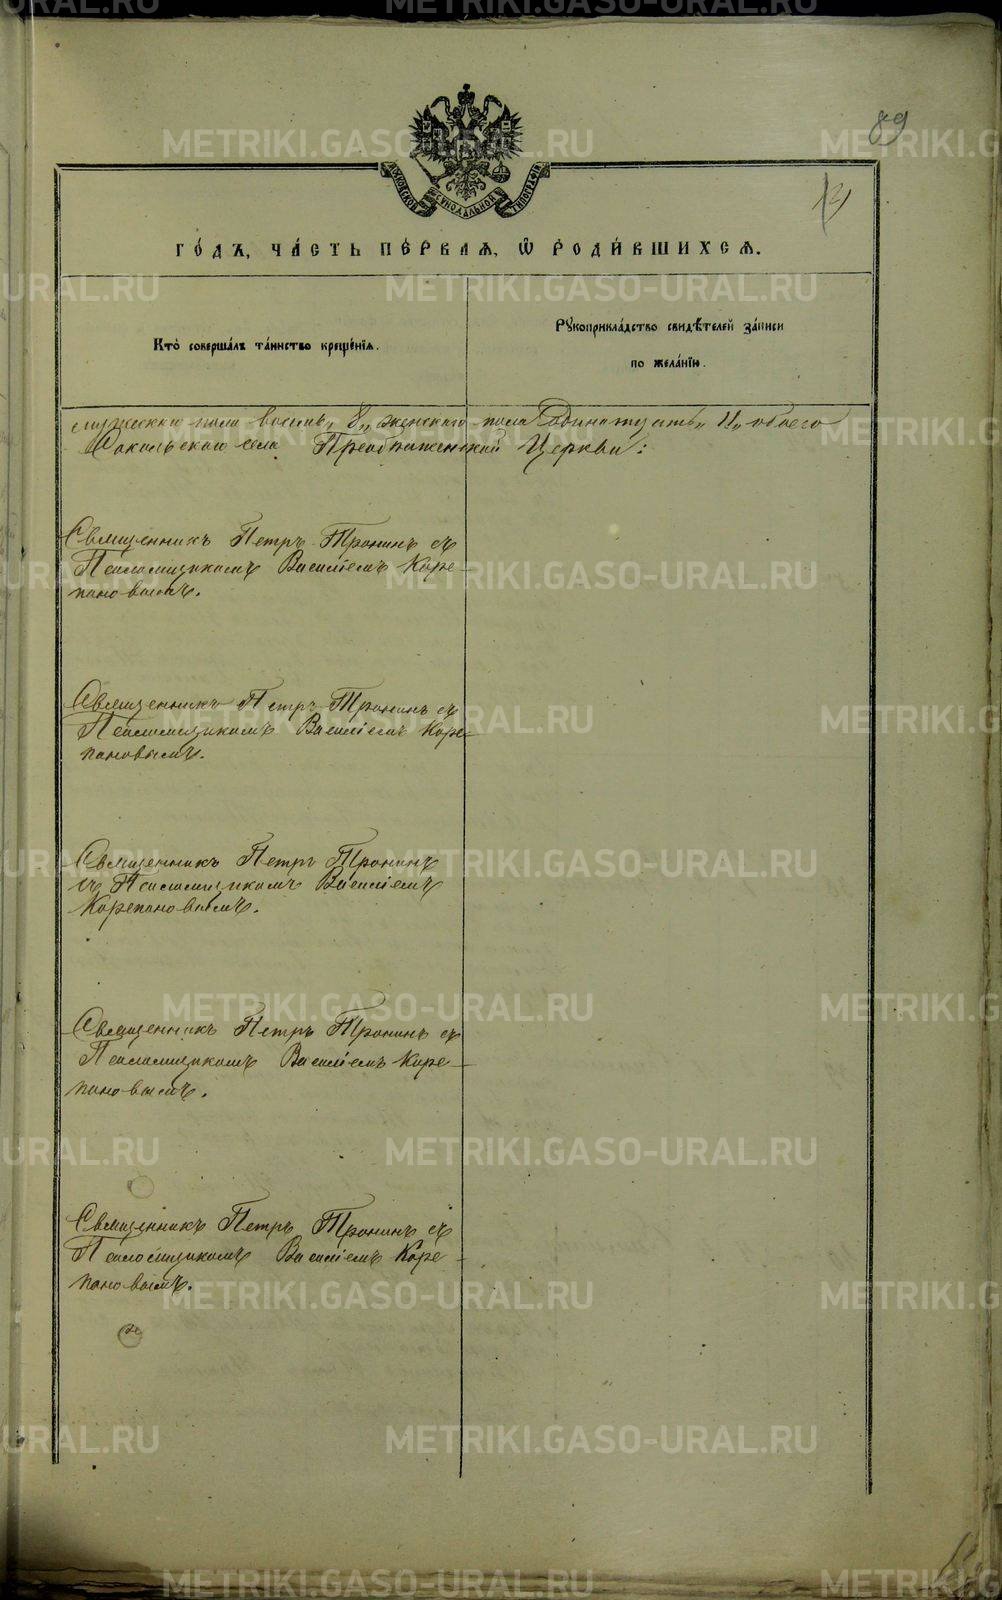 89
МОСКОВСКОЙ СѴНОДАЛЬНОЙ ТИПОГРАФІИ
ГО́ДЪ, ЧА́СТЬ ПЕ́РВАЯ, Ѽ РОДИ́ВШИХСЯ.
Кто̀ соверша́лъ та́инство креще́нїѧ.
Рꙋкоприкла́дство свидѣ́телей за́писи
по жела́нїю.
мужеска пола восемь „8„ женскаго пола Одинатцать „11„ обоего
Сокольскаго села Преображенской Церкви:
Священникъ Петръ Тронинъ съ
Псаломщикомъ Василіемъ Коре-
пановымъ.
Священникъ Петръ Тронинъ съ
Псаломщикомъ Василіемъ Коре-
пановымъ.
Священникъ Петръ Тронинъ
съ Псаломщикомъ Василіемъ
Корепановымъ.
Священникъ Петръ Тронинъ съ
Псаломщикомъ Василіемъ Коре-
пановымъ.
Священникъ Петръ Тронинъ съ
Псаломщикомъ Василіемъ Коре-
пановымъ.
METRIKI.GASO-URAL.RU